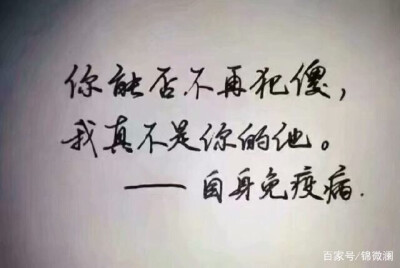 你能否不再犯傻，
我真不是你的他。
——自身免疫病.
百家号/锦微澜